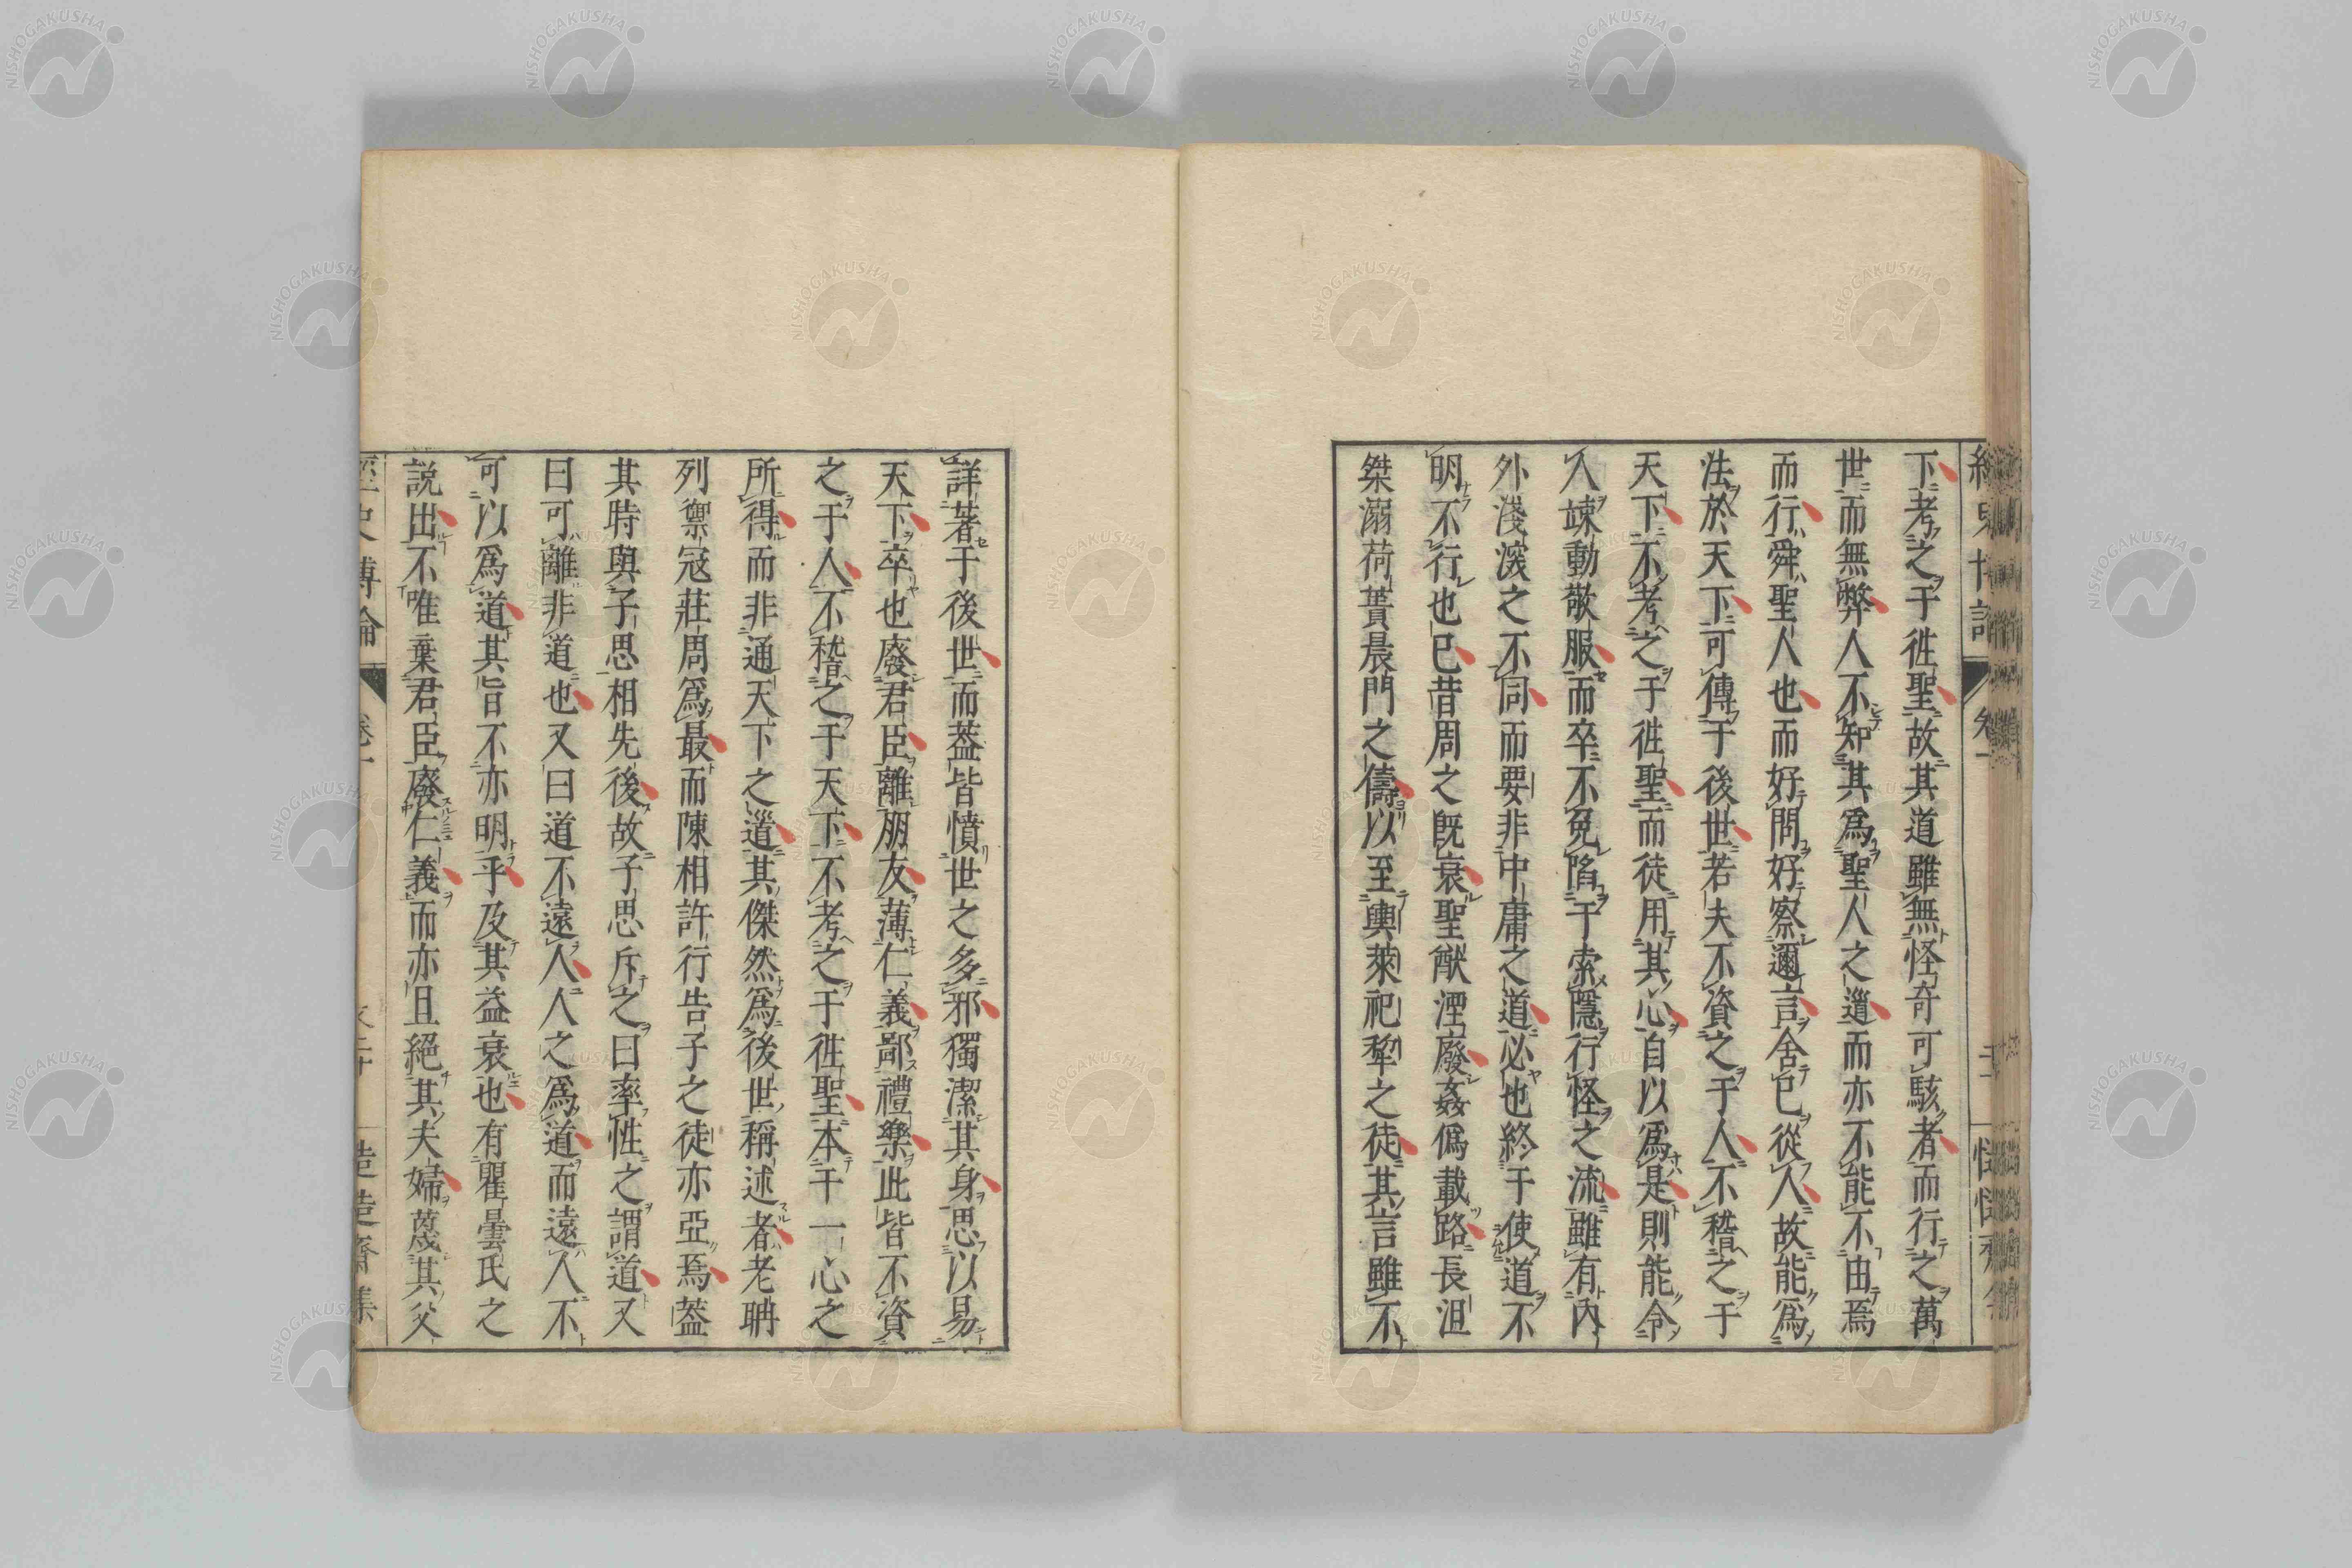 下考之于徃聖故其道雖無怪奇可駭者而行之萬
世而無弊人不知其爲聖人之道而亦不能不由焉
而行舜聖人也而好問好察邇言舍已從人故能爲
法於天下可傳于後世若夫不資之于人不稽之于
天下不考之于徃聖而徒用其心自以爲是則能令
人竦動敬服而卒不免陷于索隱行怪之流雖有內
外淺深之不同而要非中庸之道必也終于使道不
明不行也已昔周之旣衰聖猷湮廢姦僞載路長沮
桀溺荷蕢晨門之儔以至輿萊祀犂之徒其言雖不
詳著于後世而葢皆憤世之多邪獨潔其身思以易
天下卒也廢君臣離朋友薄仁義鄙禮樂此皆不資
之于人不稽之于天下不考之于徃聖本于一心之
所得而非通天下之道其傑然爲後世稱述者老聃
列禦冦莊周爲最而陳相許行告子之徒亦亞焉葢
其時與子思相先後故子思斥之曰率性之謂道又
曰可離非道也又曰道不遠人人之爲道而遠人不
可以爲道其旨不亦明乎及其益衰也有瞿曇氏之
説出不唯棄君臣廢仁義而亦且絕其夫婦蔑其父
經史博論
NISHOGAKUSHA